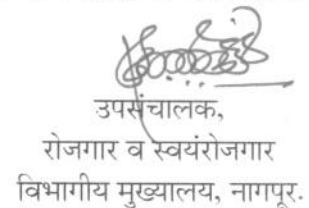 उपसंचालक,
रोजगार व स्वयंरोजगार
विभागीय मुख्यालय, नागपूर.